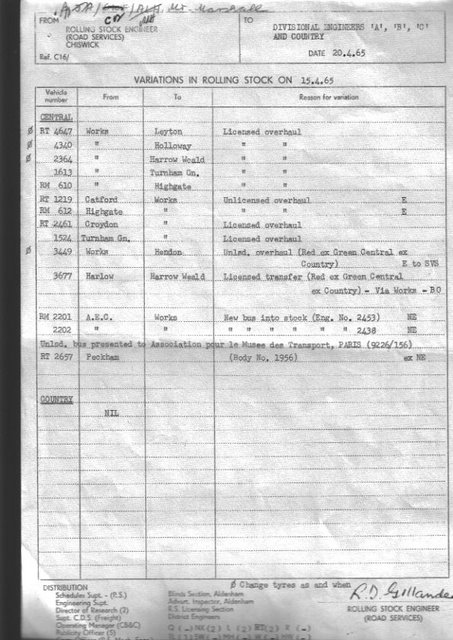 Mr. Marshall
FROM
ROLLING STOCK ENGINEER
(ROAD SERVICES)
CHISWICK
Ref. C16/
TO
DIVISIONAL ENGINEERS 'A', 'B', 'C'
AND COUNTRY
DATE 20.4.65
VARIATIONS IN ROLLING STOCK ON 15.4.65
Vehicle number From To Reason for variation
CENTRAL
Ø RT 4647 Works Leyton Licensed overhaul
Ø 4340 " Holloway " "
Ø 2364 " Harrow Weald " "
1613 " Turnham Gn. " "
RM 610 " Highgate " "
RT 1219 Catford Works Unlicensed overhaul E
RM 612 Highgate " " " E
RT 2461 Croydon " Licensed overhaul
1524 Turnham Gn. " Licensed overhaul
Ø 3449 Works Hendon Unlsd. overhaul (Red ex Green Central ex
Country) E to SVS
3677 Harlow Harrow Weald Licensed transfer (Red ex Green Central
ex Country) - Via Works - BO
RM 2201 A.E.C. Works New bus into stock (Eng. No. 2453) NE
2202 " " " " " " " " 2438 NE
Unlsd. bus presented to Association pour le Musee des Transport, PARIS (9226/156)
RT 2657 Peckham (Body No. 1956) ex NE
COUNTRY
NIL
Ø Change tyres as and when
R.D. Gillander
ROLLING STOCK ENGINEER
(ROAD SERVICES)
DISTRIBUTION
Schedules Supt. - (R.S.)
Engineering Supt.
Director of Research (2)
Supt. C.D.S. (Freight)
Operating Manager (CS&C)
Publicity Officer (5)
Blinds Section, Aldenham
Advert. Inspector, Aldenham
R.S. Licensing Section
District Engineers